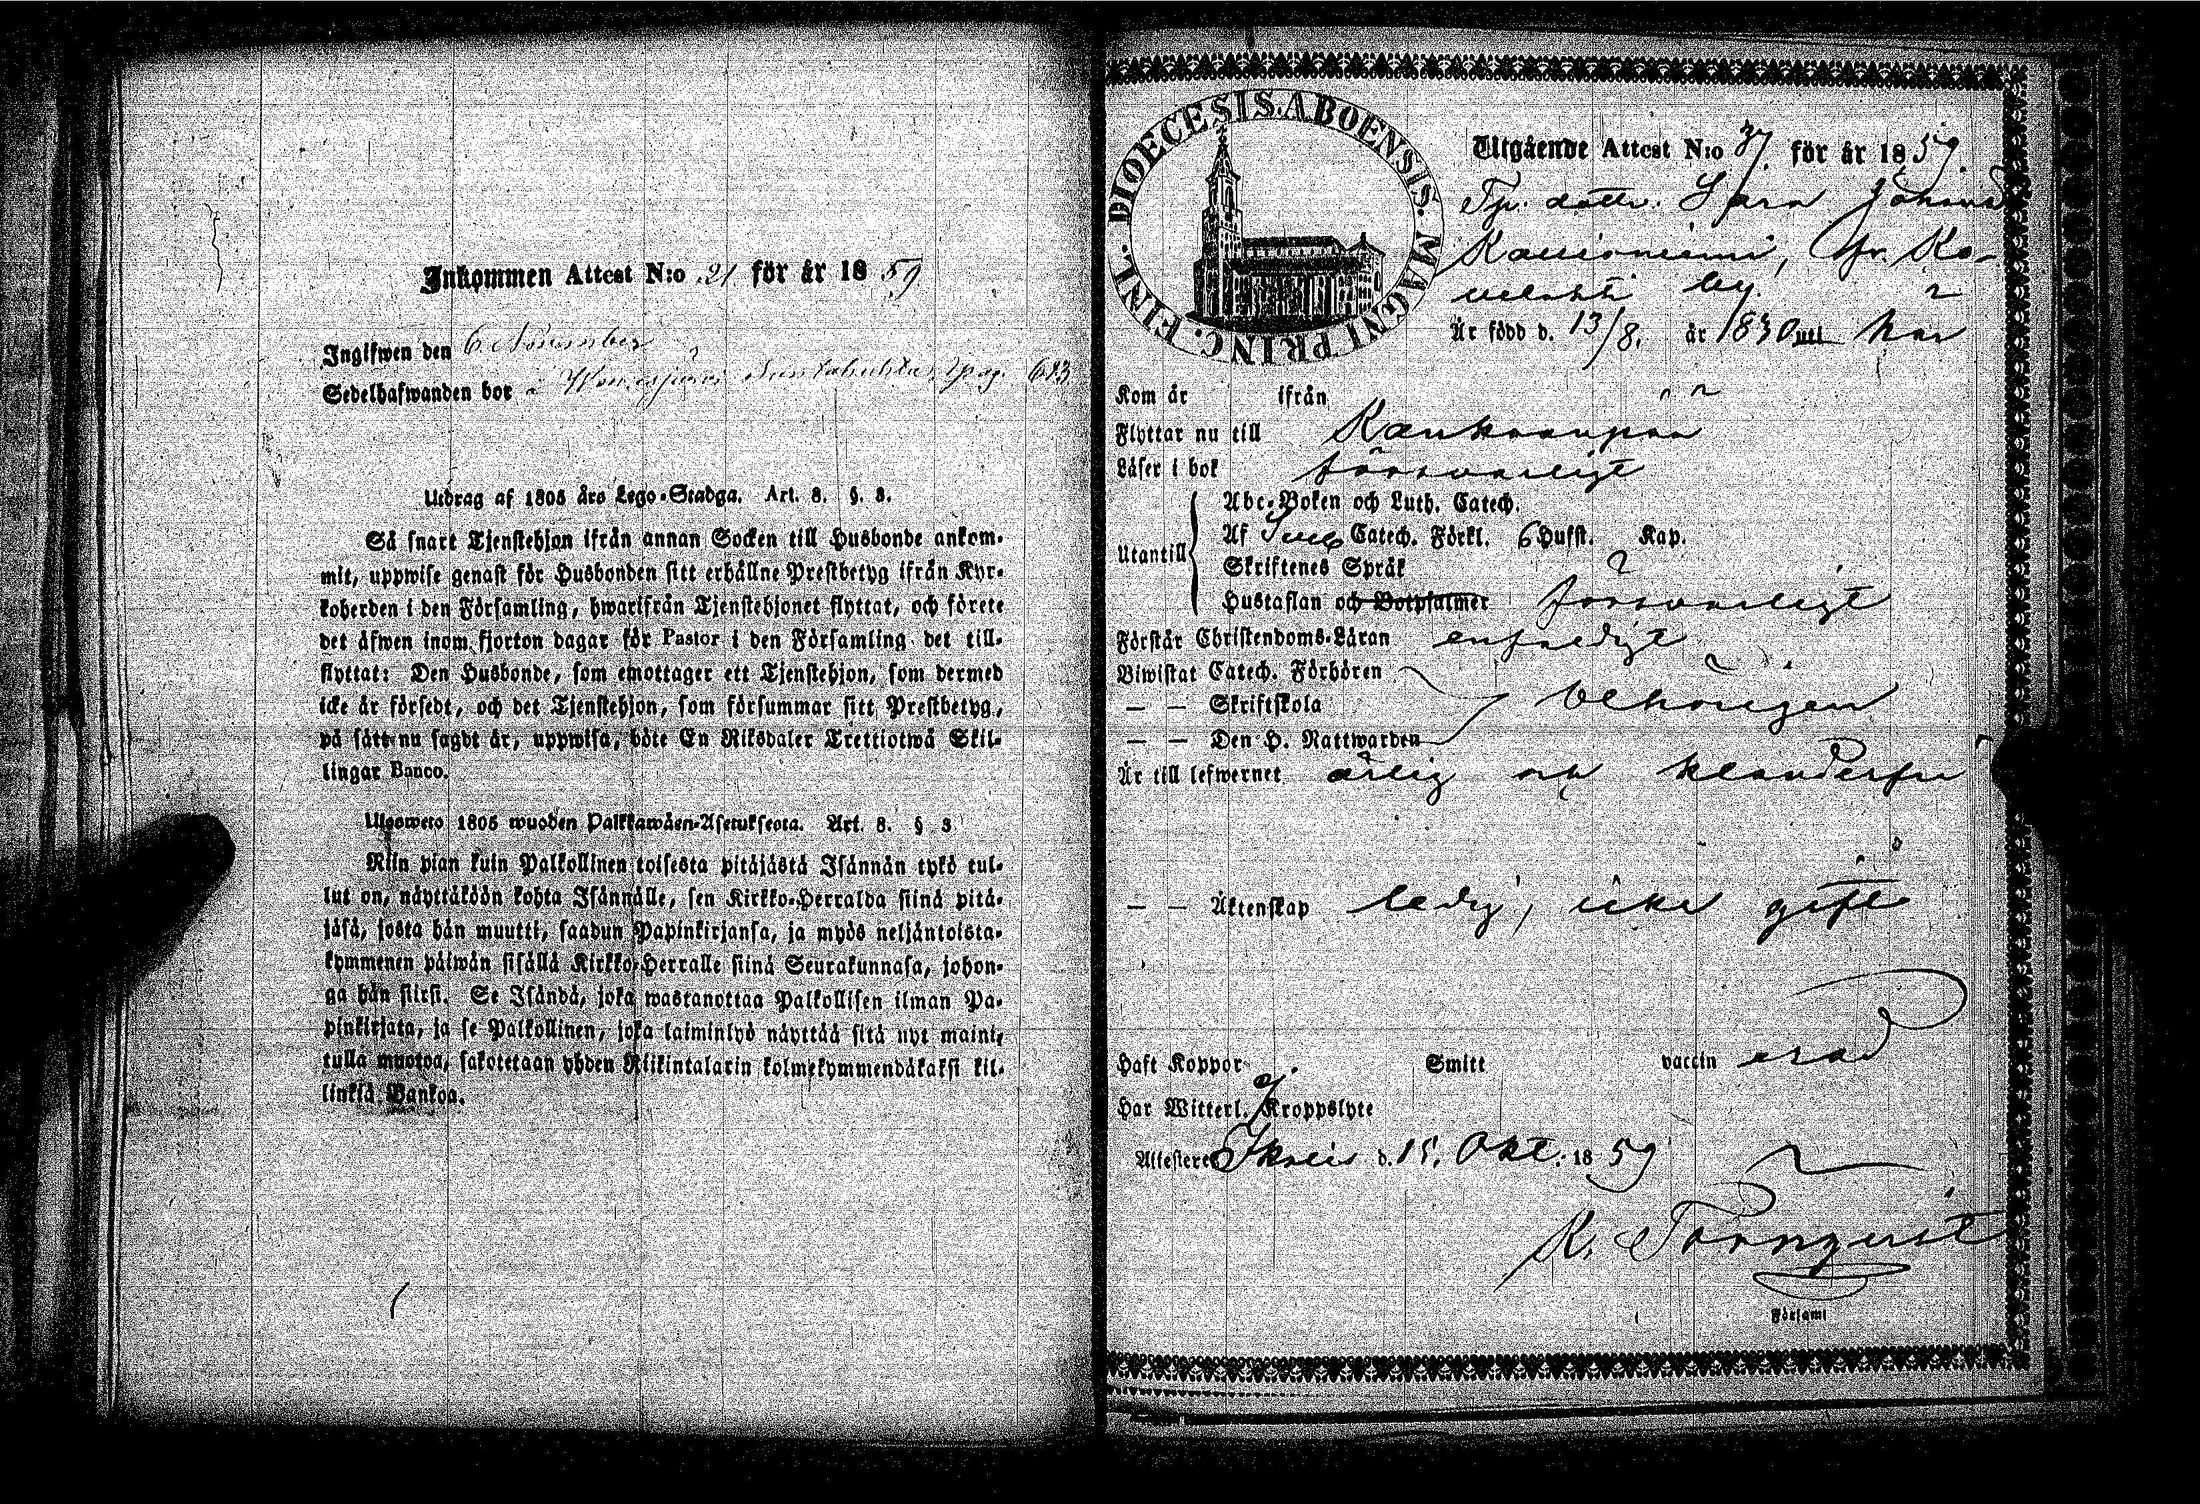 Inkommen Attest N:o 21 för år 1859
Ingifwen den 6 November
Sedelhafwanden bor pag. 613
Utdrag af 1805 års Lego-Stadga. Art. 8. §. 3.
Så snart Tjenstehjon ifrån annan Socken till Husbonde ankom-
mit, uppwise genast för Husbonden sitt erhållne Prestbetyg ifrån Kyr-
koherden i den Församling, hwarifrån Tjenstehjonet flyttat, och förete
det äfwen inom fjorton dagar för Pastor i den Församling det till-
flyttat: Den Husbonde, som emottager ett Tjenstehjon, som dermed
icke är försedt, och det Tjenstehjon, som försummar sitt Prestbetyg,
på sätt nu sagdt är, uppwisa, böte En Riksdaler Trettiotwå Skil-
lingar Banco.
Ulosweto 1805 wuoden Palkkawäen-Asetuksesta. Art. 8. § 3
Niin pian kuin Palkollinen toisesta pitäjästä Isännän tykö tul-
lut on, näyttäköön kohta Isännälle, sen Kirkko-Herralda siinä pitä-
jäsä, josta hän muutti, saadun Papinkirjansa, ja myös neljäntoista-
kymmenen päiwän sisällä Kirkko-Herralle siinä Seurakunnasa, johon-
ga hän siirsi. Se Isändä, joka wastanottaa Palkollisen ilman Pa-
pinkirjata, ja se Palkollinen, joka laiminlyö näyttää sitä nyt maini-
tulla muotoa, sakotetaan yhden Riikintalarin kolmekymmendäkaksi kil-
linkiä Bankoa.
DIOECESIS. ABOENSIS. MAGNI PRINC. FINL.
Utgående Attest N:o 37. för år 1859.
Tp. dottr. Sara Johansd
by.
Är född d. 13/8. år 1830 har
Kom år ifrån
Flyttar nu till Kankaanpää
Läser i bok försvarligt
Abc-Boken och Luth. Catech.
Af Sveb Catech. Förkl. 6 Hufst. Kap.
Utantill
Skriftenes Språk
Hustaflan och Botpsalmer försvarligt
Förstår Christendoms-Läran enfaldigt
Biwistat Catech. Förhören
— — Skriftskola behörigen
— — Den H. Nattwarden
Är till lefwernet ärlig och klanderfri
— — Äktenskap ledig, icke gift
Haft Koppor Smitt vaccin erad
Har Witterl. Kroppslyte
Attesterer Ikalis d. 15. Okt. 1859
K. Törnqvist
Församl